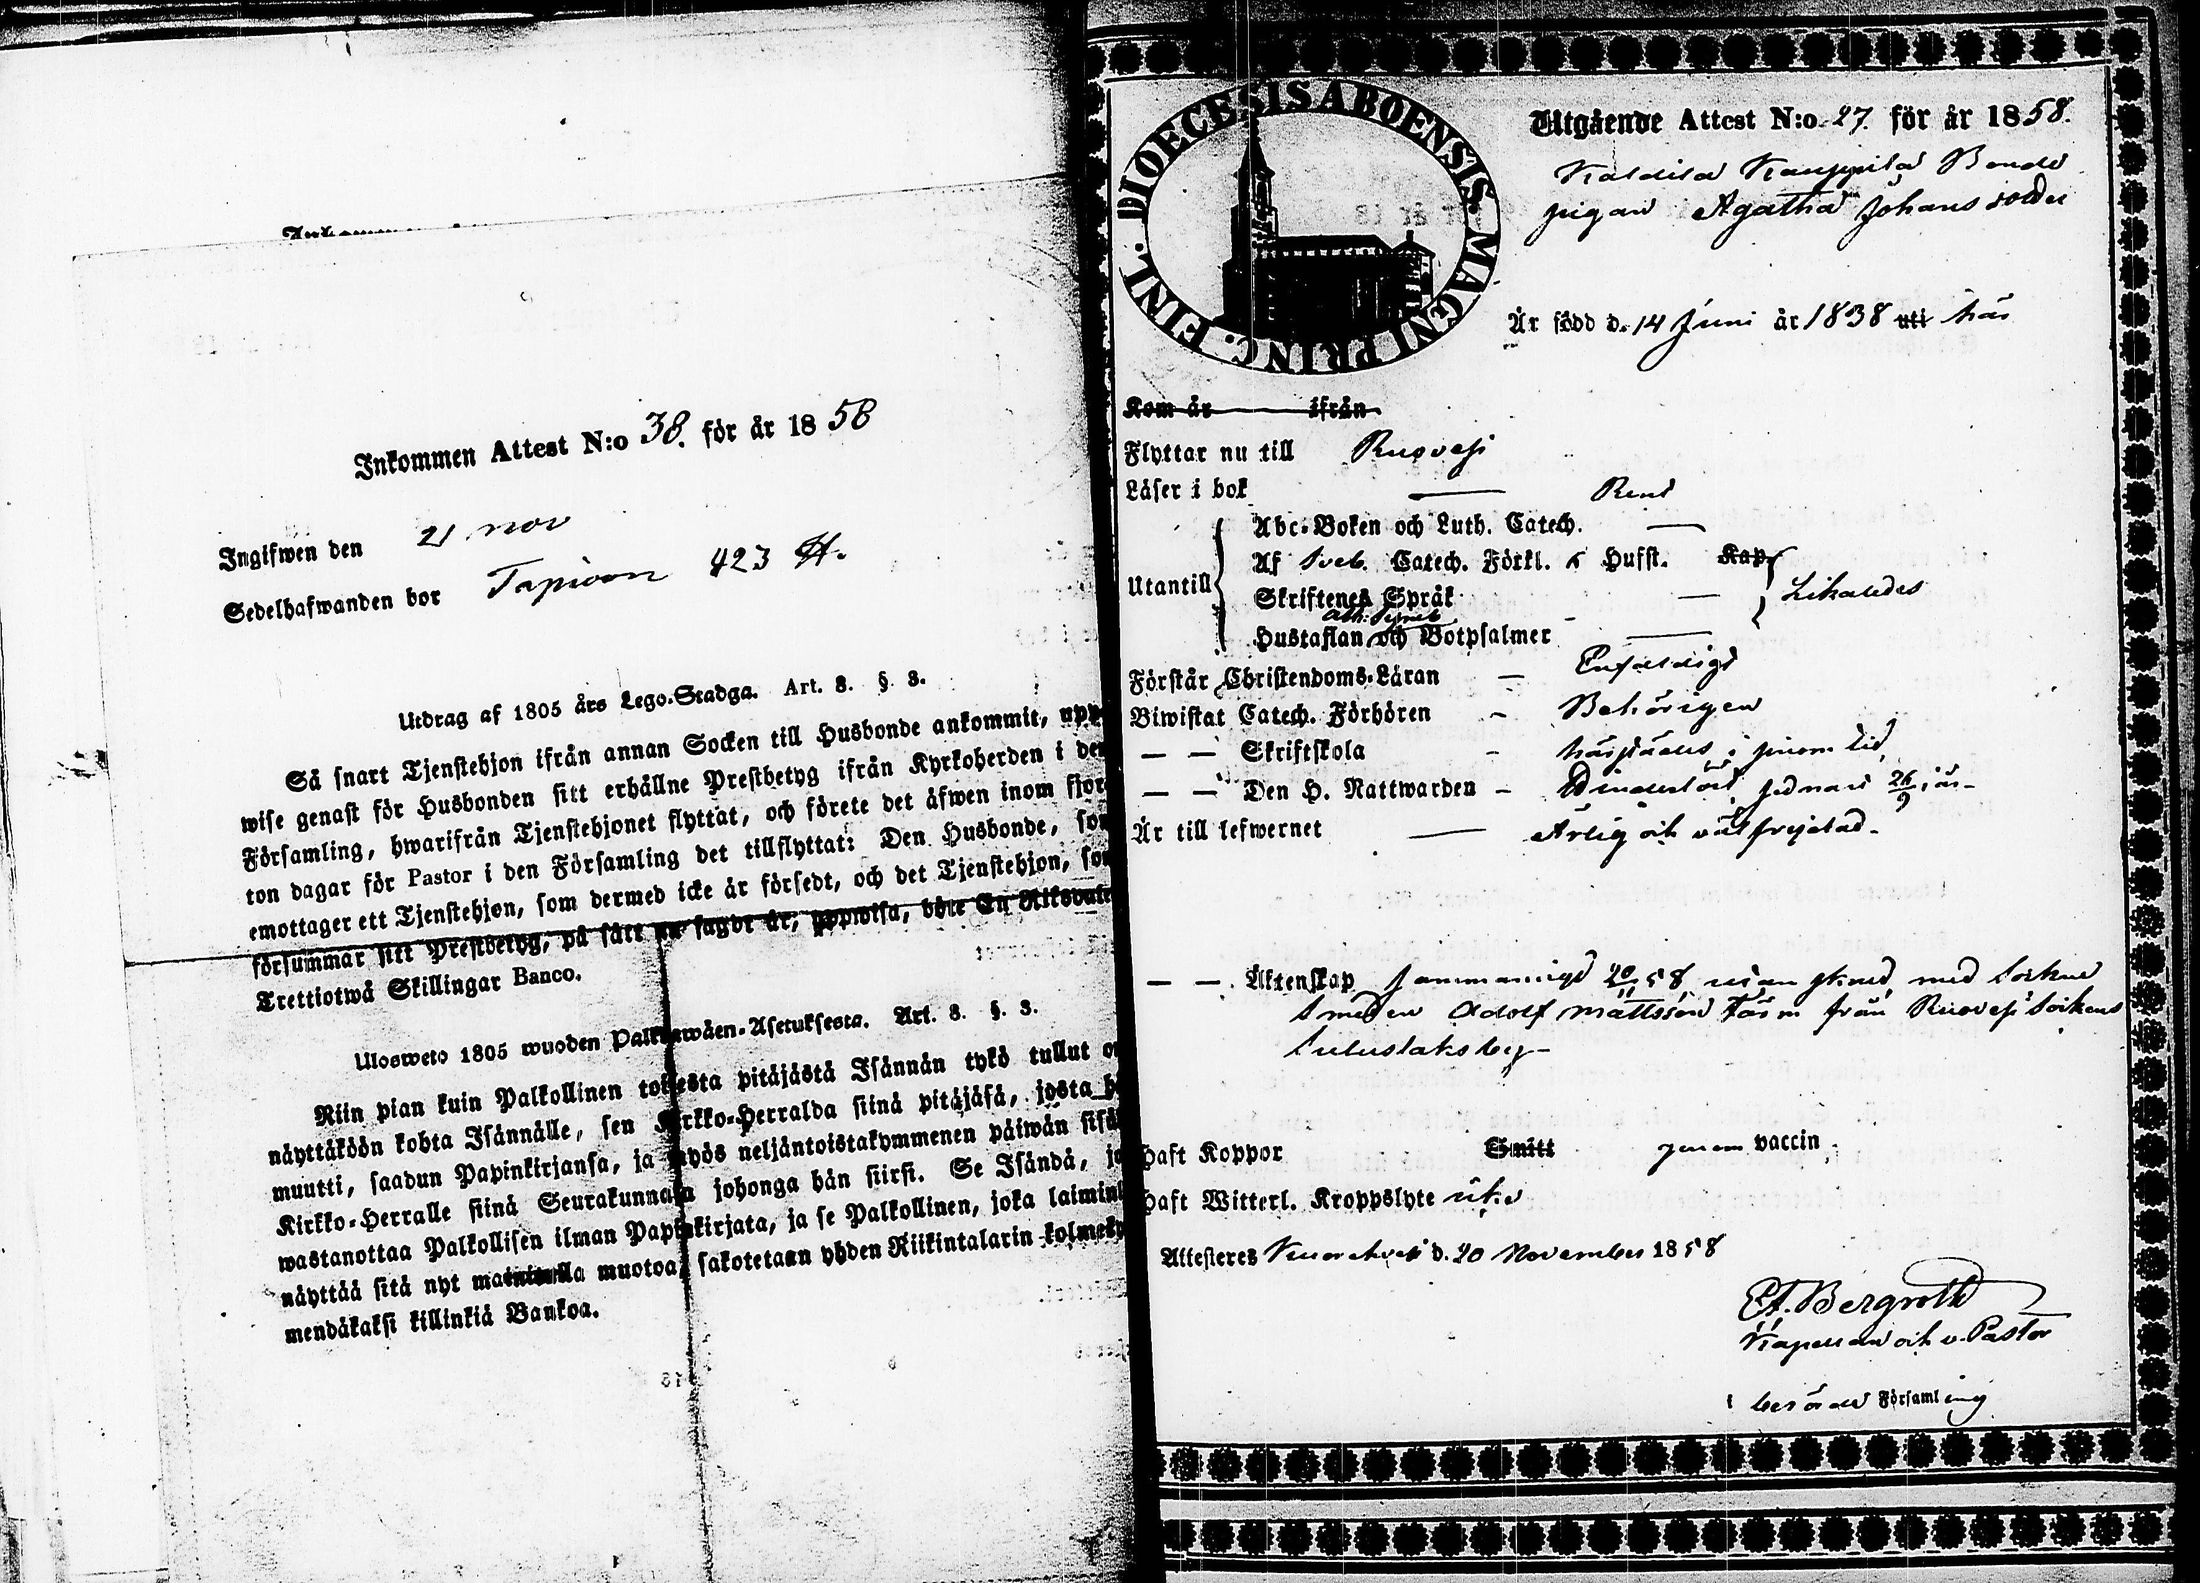 Inkommen Attest N:o 38. för år 1858
Ingifwen den 21 nov
Sedelhafwanden bor Tapioon 423
Utdrag af 1805 års Lego-Stadga. Art. 8. § 3.
Så snart Tjenstehjon ifrån annan Socken till Husbonde ankommit, upp
wise genast för Husbonden sitt erhållne Prestbetyg ifrån Kyrkoherden i den
Församling, hwarifrån Tjenstehjonet flyttat, och förete det äfwen inom fjor
ton dagar för Pastor i den Församling det tillflyttat: Den Husbonde, som
emottager ett Tjenstehjon, som dermed icke är försedt, och det Tjenstehjon, som
försummar sitt Prestbetyg, på sätt nu sagdt är, uppwisa, böte En Riksdaler
Trettiotwå Skillingar Banco.
Ulosweto 1805 wuoden Palkkawäen-Asetuksesta. Art. 8. §. 3.
Niin pian kuin Palkollinen toisesta pitäjästä Isännän tykö tullut on
näyttäköön kohta Isännälle, sen Kirkko-Herralda siinä pitäjäsä, josta hän
muutti, saadun Papinkirjansa, ja myös neljäntoistakymmenen päiwän sisäl
Kirkko-Herralle siinä Seurakunnasa johonga hän siirsi. Se Isändä, jo
wastanottaa Palkollisen ilman Papinkirjata, ja se Palkollinen, joka laiminl
näyttää sitä nyt mainitulla muotoa, sakotetaan yhden Riikintalarin kolmeky
mendäkaksi killinkiä Bankoa.
DIOECESIS ABOENSIS. MAGNI PRINC. FINL.
Utgående Attest N:o 27. för år 1858.
Kauppila Bonde
pigan Agatha Johansdotter
Är född d. 14 Juni år 1838 uti här
Kom år ifrån
Flyttar nu till Ruovesi
Läser i bok — Rent
Utantill
Abc-Boken och Luth. Catech. —
Af Sveb. Catech. Förkl. Hufst. Kap
Skriftenes Språk —
Ath. Symb.
Hustaflan och Botpsalmer — Likaledes
Förstår Christendoms-Läran — Enfaldigt
Biwistat Catech. Förhören - Behörigen
— — Skriftskola - härstädes i sinom tid
— — Den H. Nattwarden - sednast 26/9 i år-
Är till lefwernet — Ärlig och väl frejdad.
— — Äktenskap Sammanvigd 20/11 58 med Socken
Smeden Adolf Mattsson från Ruovesi Sockens
Haft Koppor Smitt genom vaccin.
Haft Witterl. Kroppslyte icke
Attesteres d. 20 November 1858
Bergroth
Kapellan och v. Pastor
i berörde Församling